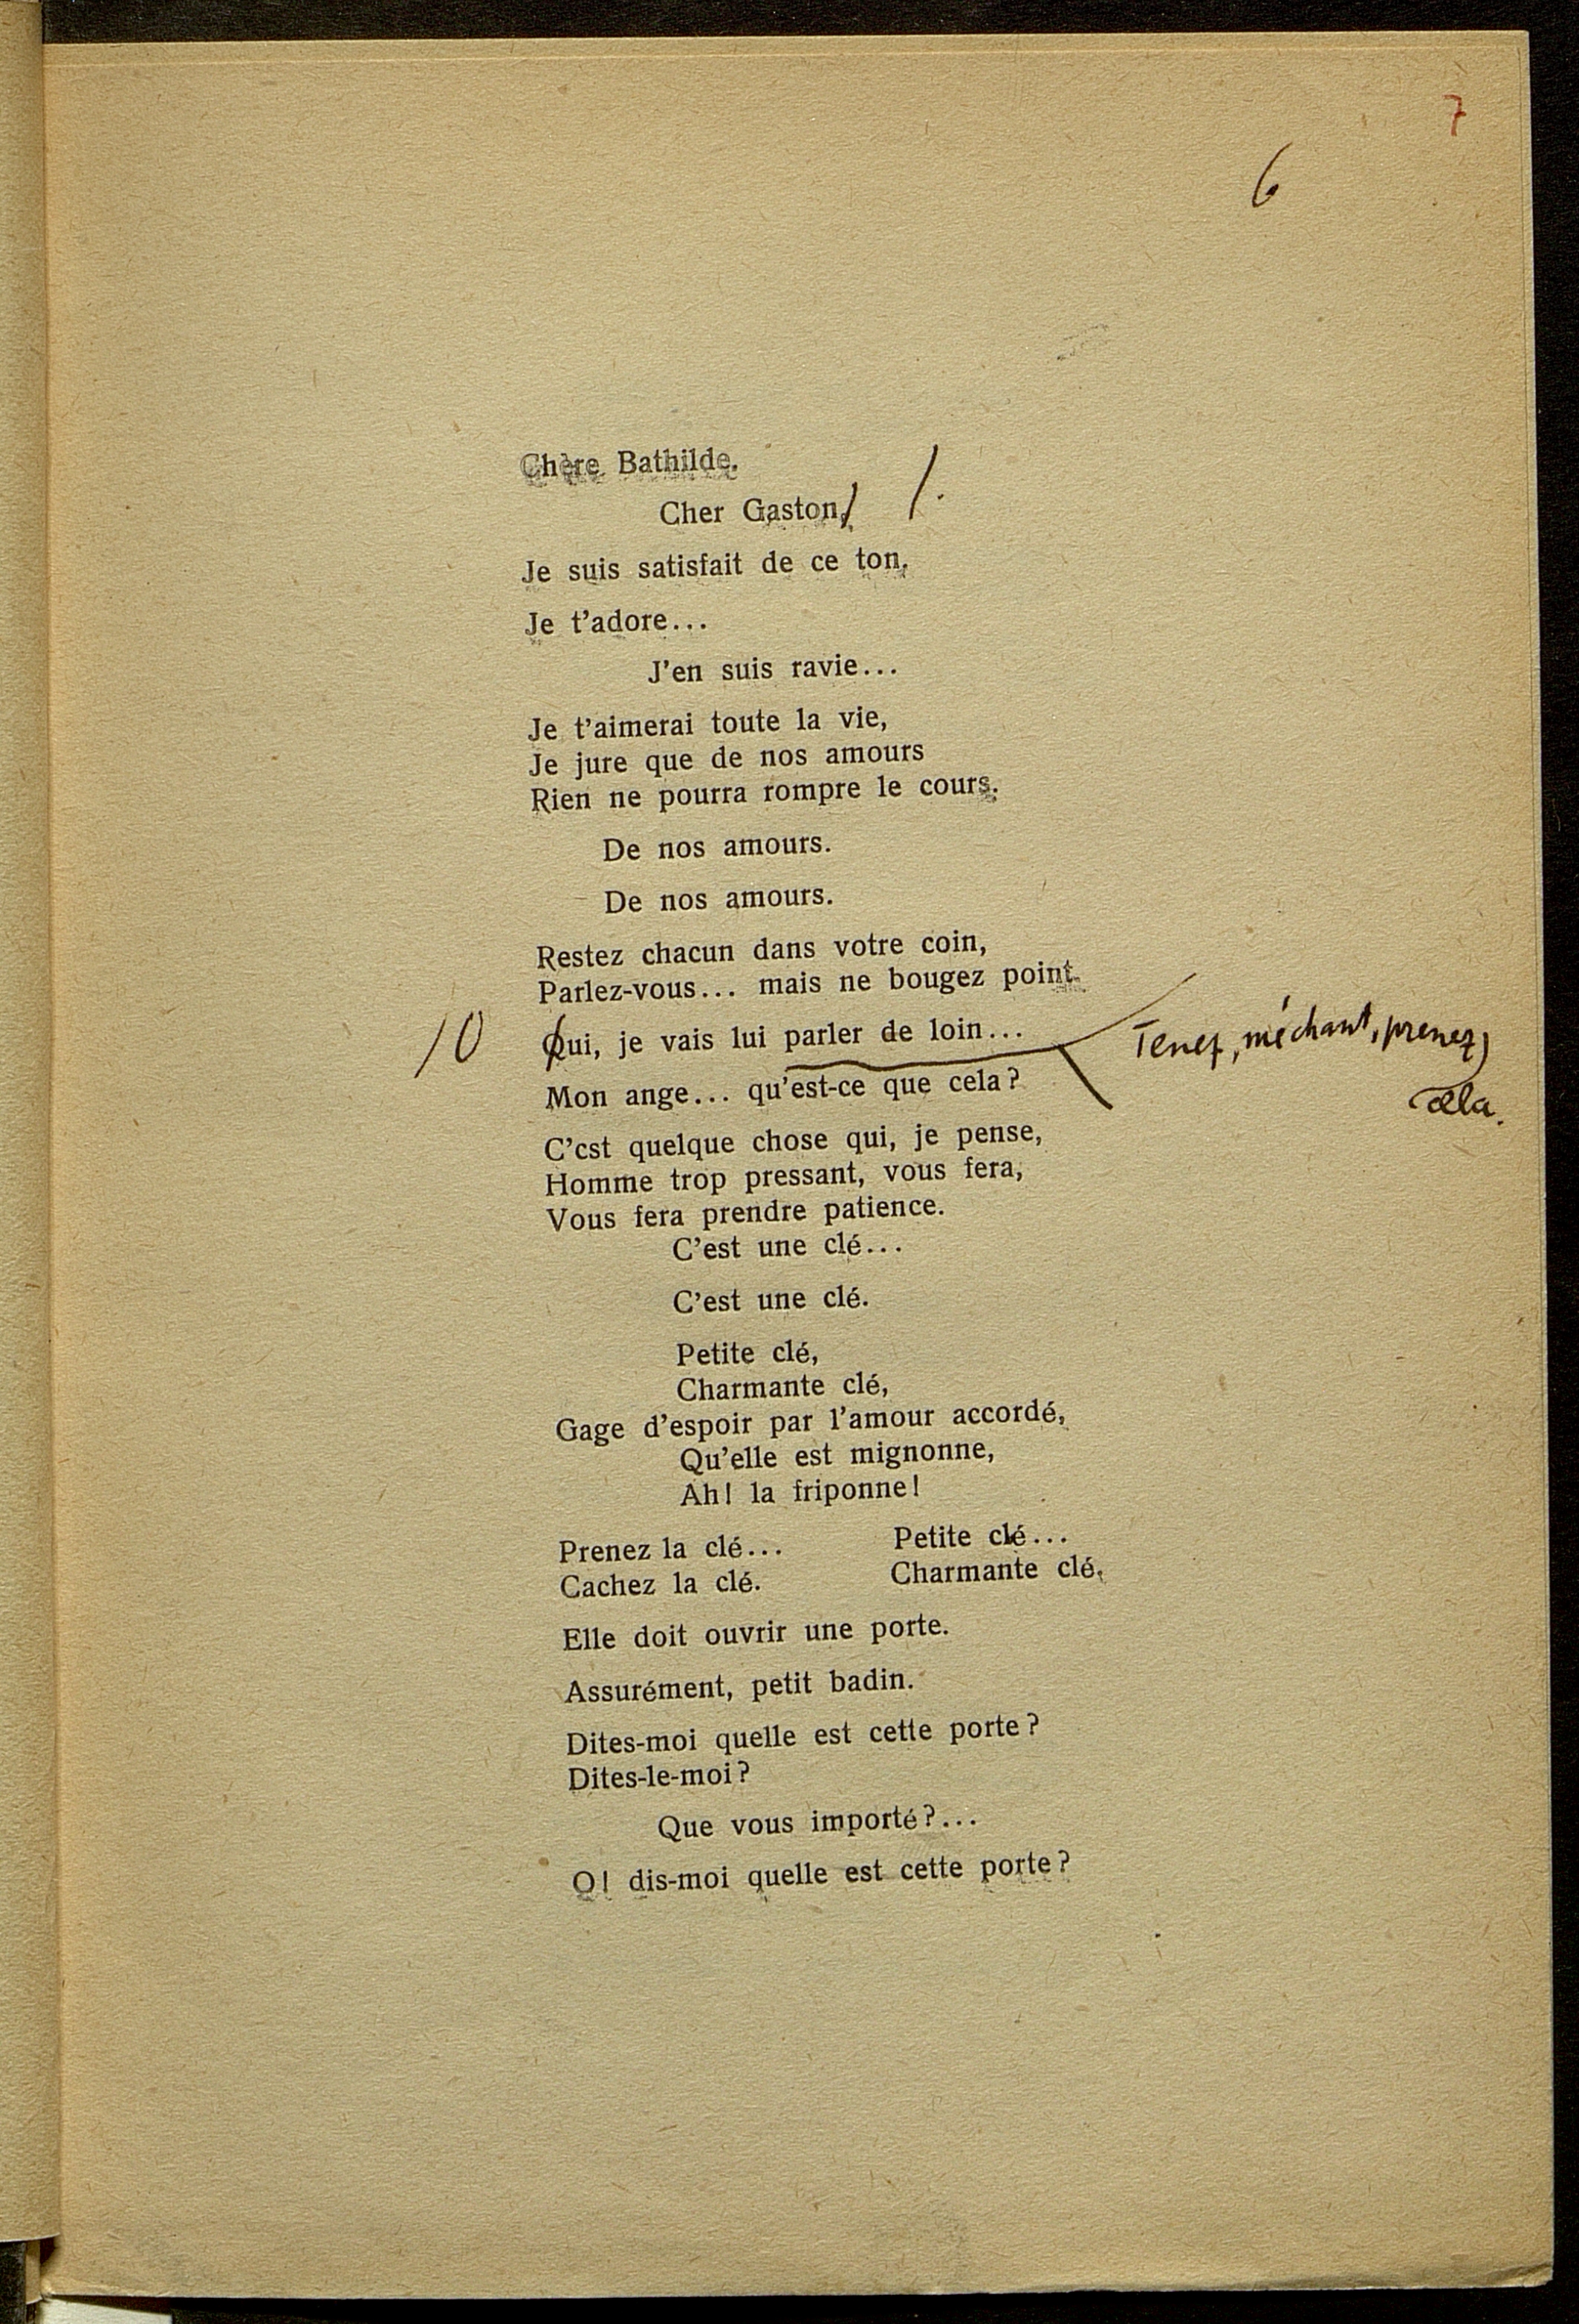 7
6
Chère Bathilde.
Cher Gaston, /.
Je suis satisfait de ce ton.
Je t'adore...
J'en suis ravie...
Je t'aimerai toute la vie,
Je jure que de nos amours
Rien ne pourra rompre le cours.
De nos amours.
De nos amours.
Restez chacun dans votre coin,
Parlez-vous... mais ne bougez point.
/O Qui, je vais lui parler de loin...
Tenez, méchant, prenez
cela.
Mon ange... qu'est-ce que cela?
C'cst quelque chose qui, je pense,
Homme trop pressant, vous fera,
Vous fera prendre patience.
C'est une clé...
C'est une clé.
Petite clé,
Charmante clé,
Gage d'espoir par l'amour accordé,
Qu'elle est mignonne,
Ah! la friponne!
Prenez la clé... Petite clé...
Cachez la clé. Charmante clé,
Elle doit ouvrir une porte.
Assurément, petit badin.
Dites-moi quelle est cette porte?
Dites-le-moi?
Que vous importé?...
O! dis-moi quelle est cette porte?